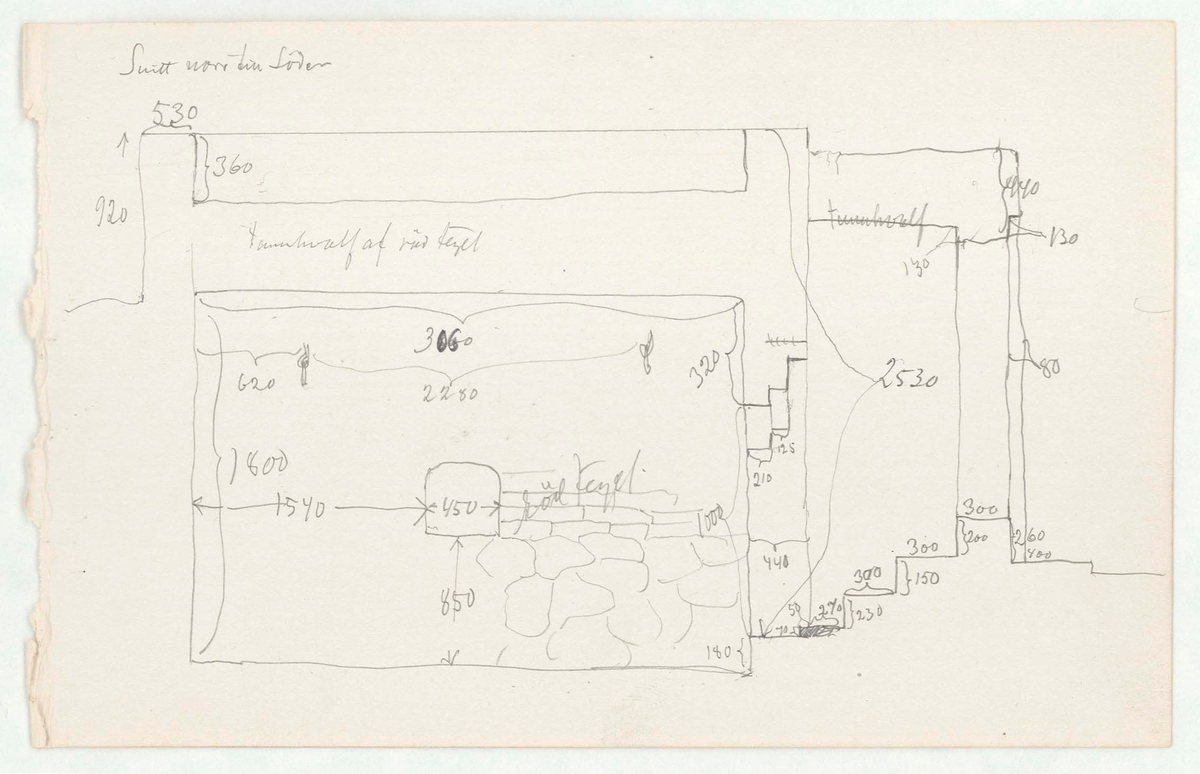 Snitt norr till Söder
530
360
920
440
tunnhvalf
130
130
Tunnhvalf af röd tegel
3060
320
620
2280
2530
80
1800
125
210
röd Tegel
1540
450
1000
300
200
260
400
300
440
300
150
850
50
270
230
70
180